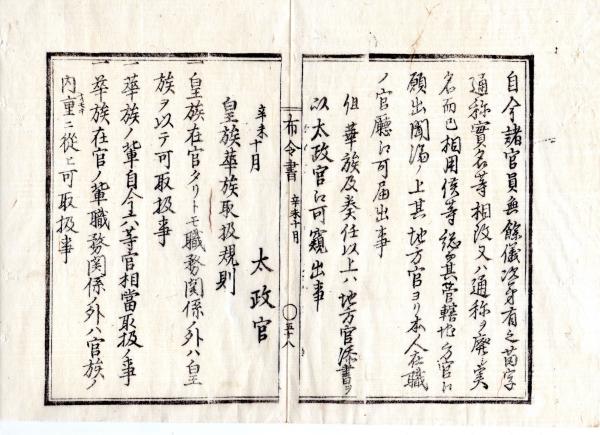 自今諸官員無餘儀次第有之苗字
通称實名等相改又ハ通称ヲ廃シ実
名而已相用候等総テ其管轄地方官ニ
願出聞済ノ上其地方官ヨリ本人在職
ノ官廳江可届出事
但華族及奏任以上ハ地方官添書ヲ
以太政官江可窺出事
辛未十月
太政官
布令書
辛未十月
五十八
皇族華族取扱規則
一皇族在官タリトモ職務関係ノ外ハ皇
族ヲ以テ可取扱事
一華族ノ輩自今六等官相當取扱ノ事
一華族在官ノ輩職務関係ノ外ハ官族ノ
内重ニ從ヒ可取扱事